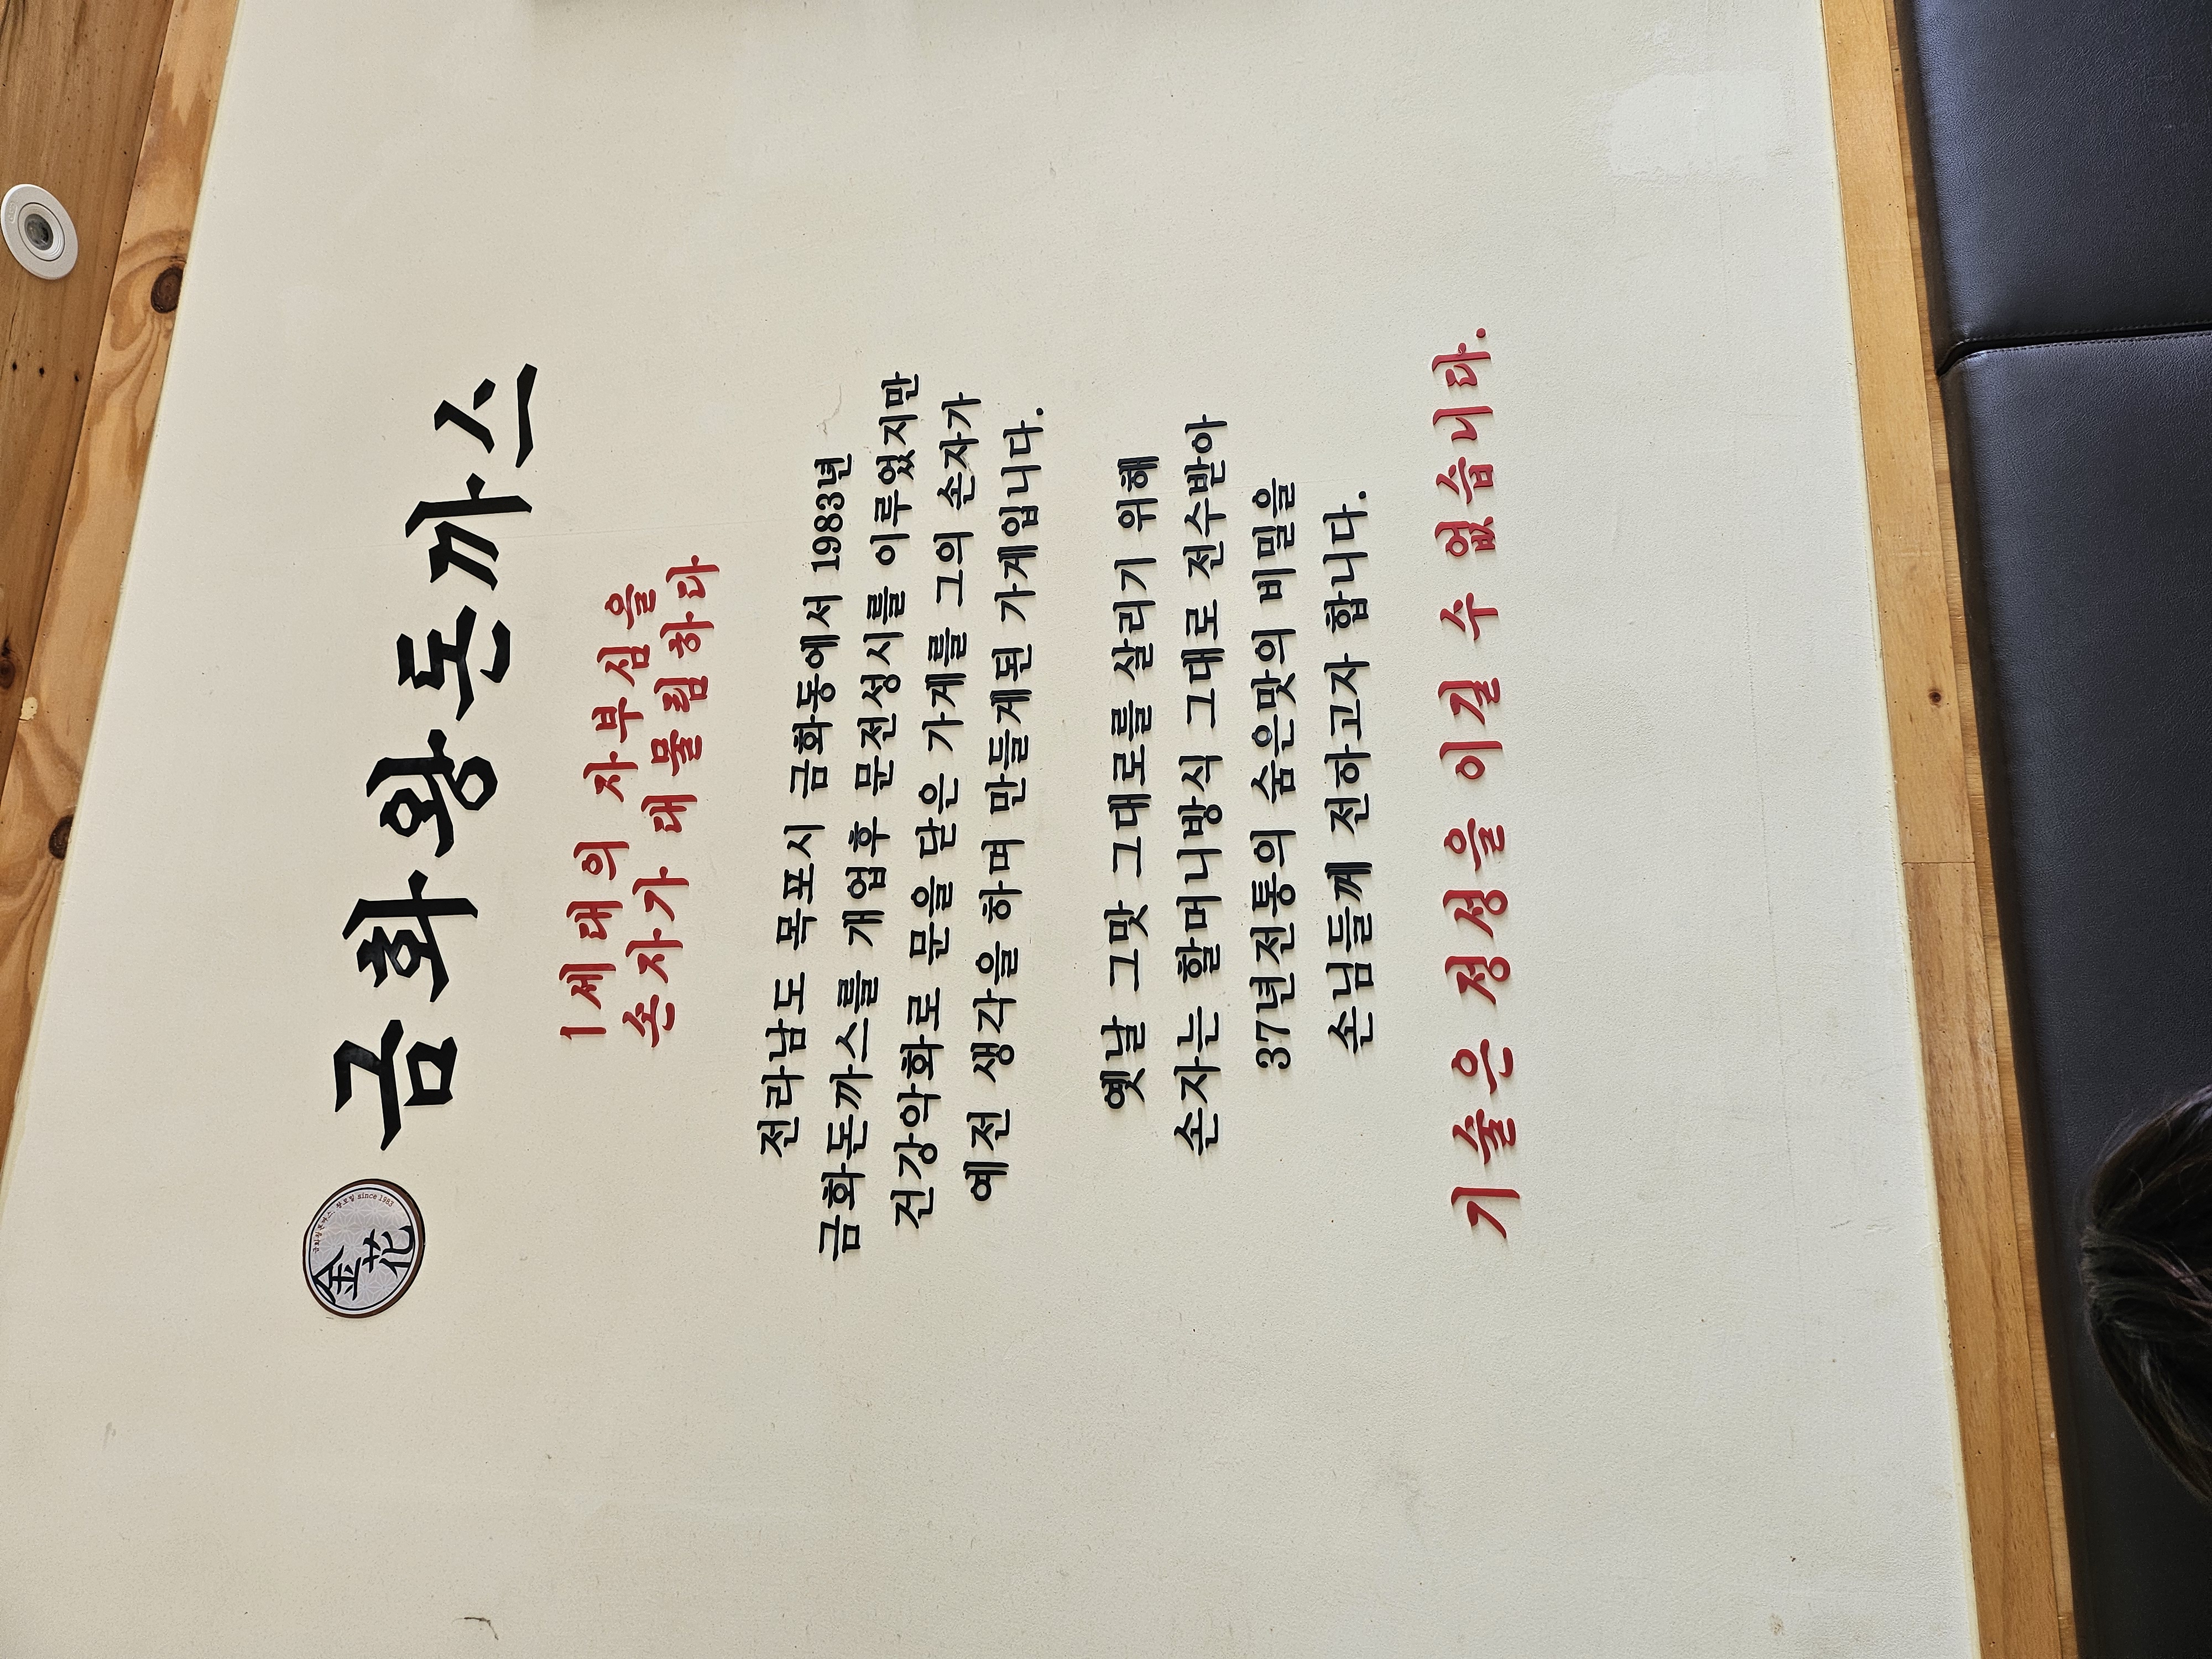 金花
since 1983
금화왕돈까스
1세대의 자부심을
손자가 대물림하다
전라남도 목포시 금화동에서 1983년
금화돈까스를 개업후 문전성시를 이루었지만
건강악화로 문을 닫은 가게를 그의 손자가
예전 생각을 하며 만들게된 가게입니다.
옛날 그맛 그대로를 살리기 위해
손자는 할머니방식 그대로 전수받아
37년전통의 숨은맛의 비밀을
손님들께 전하고자 합니다.
기술은 정성을 이길 수 없습니다.